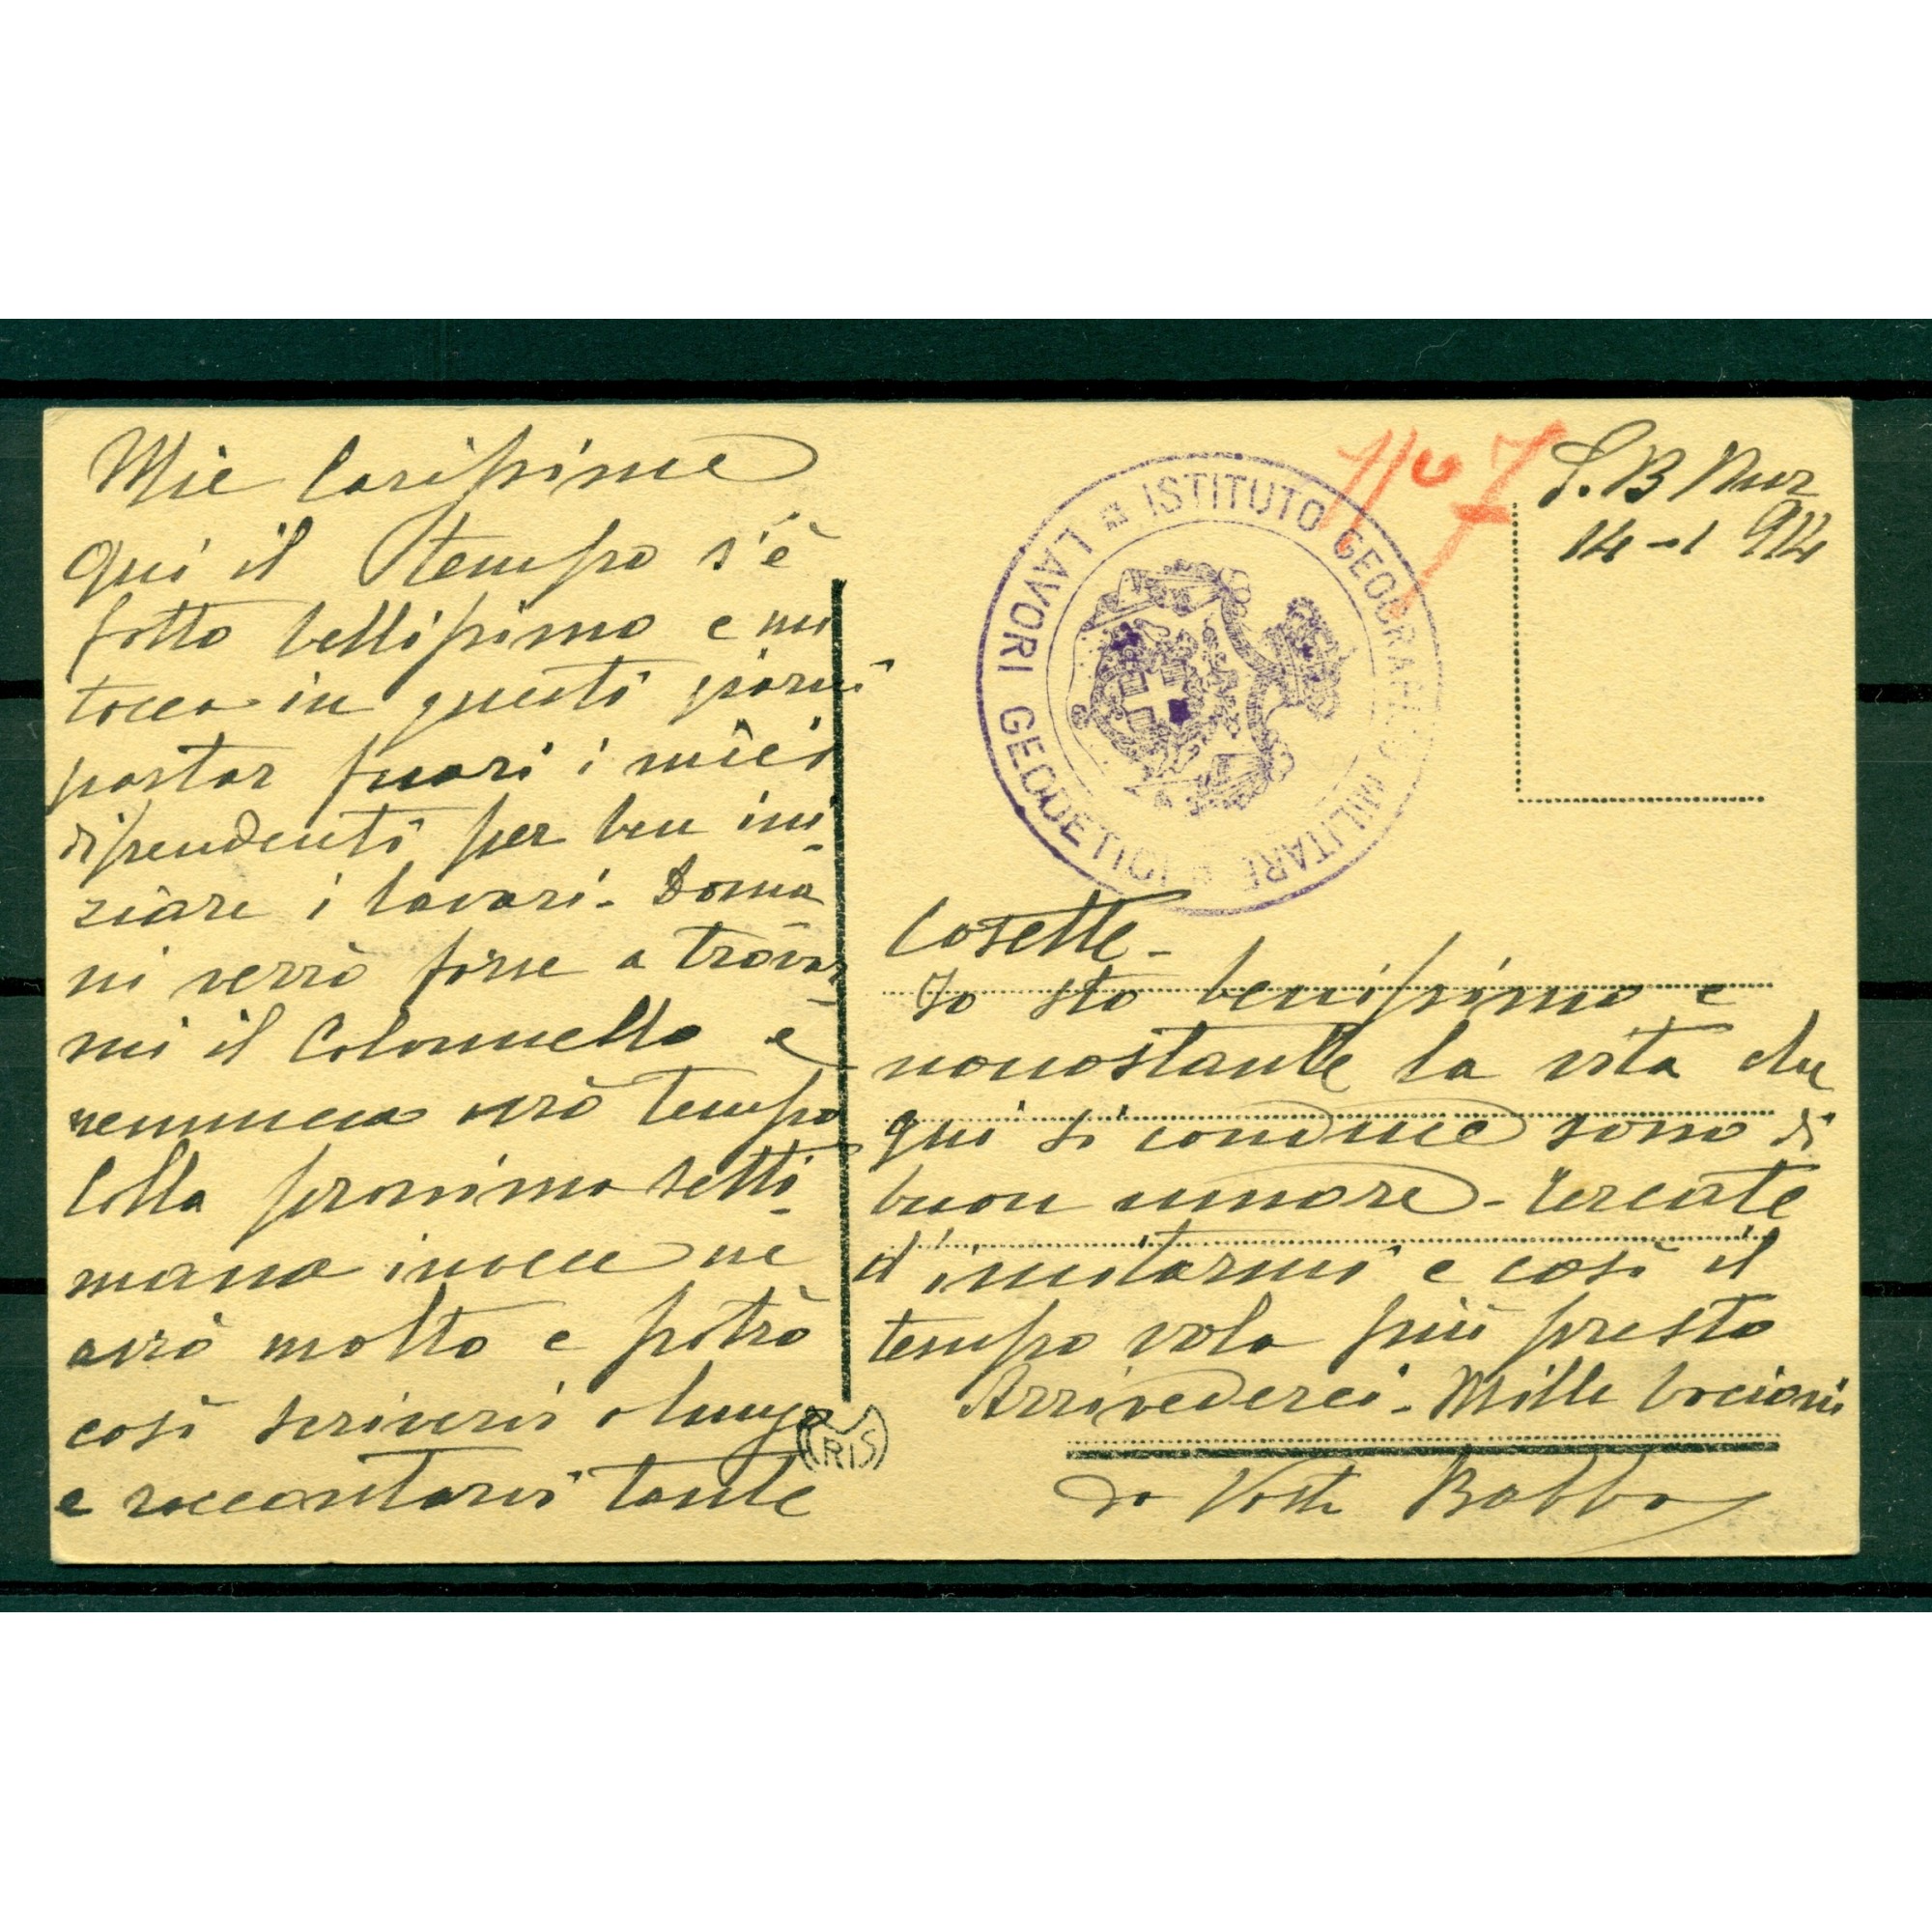 Mie Carissime
Qui il tempo s'è
fatto bellissimo e mi
tocca in questi giorni
portar fuori i miei
dipendenti per ben ini-
ziare i lavori. Doma
ni verrò forse a trovar-
mi il Colonnello e
nemmeno avrò tempo
Colla prossima setti-
mana invece ne
avrò molto e potrò
così scrivervi a lungo
e raccontarvi tante
IRIS
ISTITUTO GEOGRAFICO MILITARE
LAVORI GEODETICI
No 7
S. B Nur
14-1 914
Cosette -
Io sto benissimo e
nonostante la vita che
qui si conduce sono di
buon umore - Cercate
d'imitarmi e così il
tempo vola più presto
Arrivederci - Mille bacioni
da Vostro Babbo